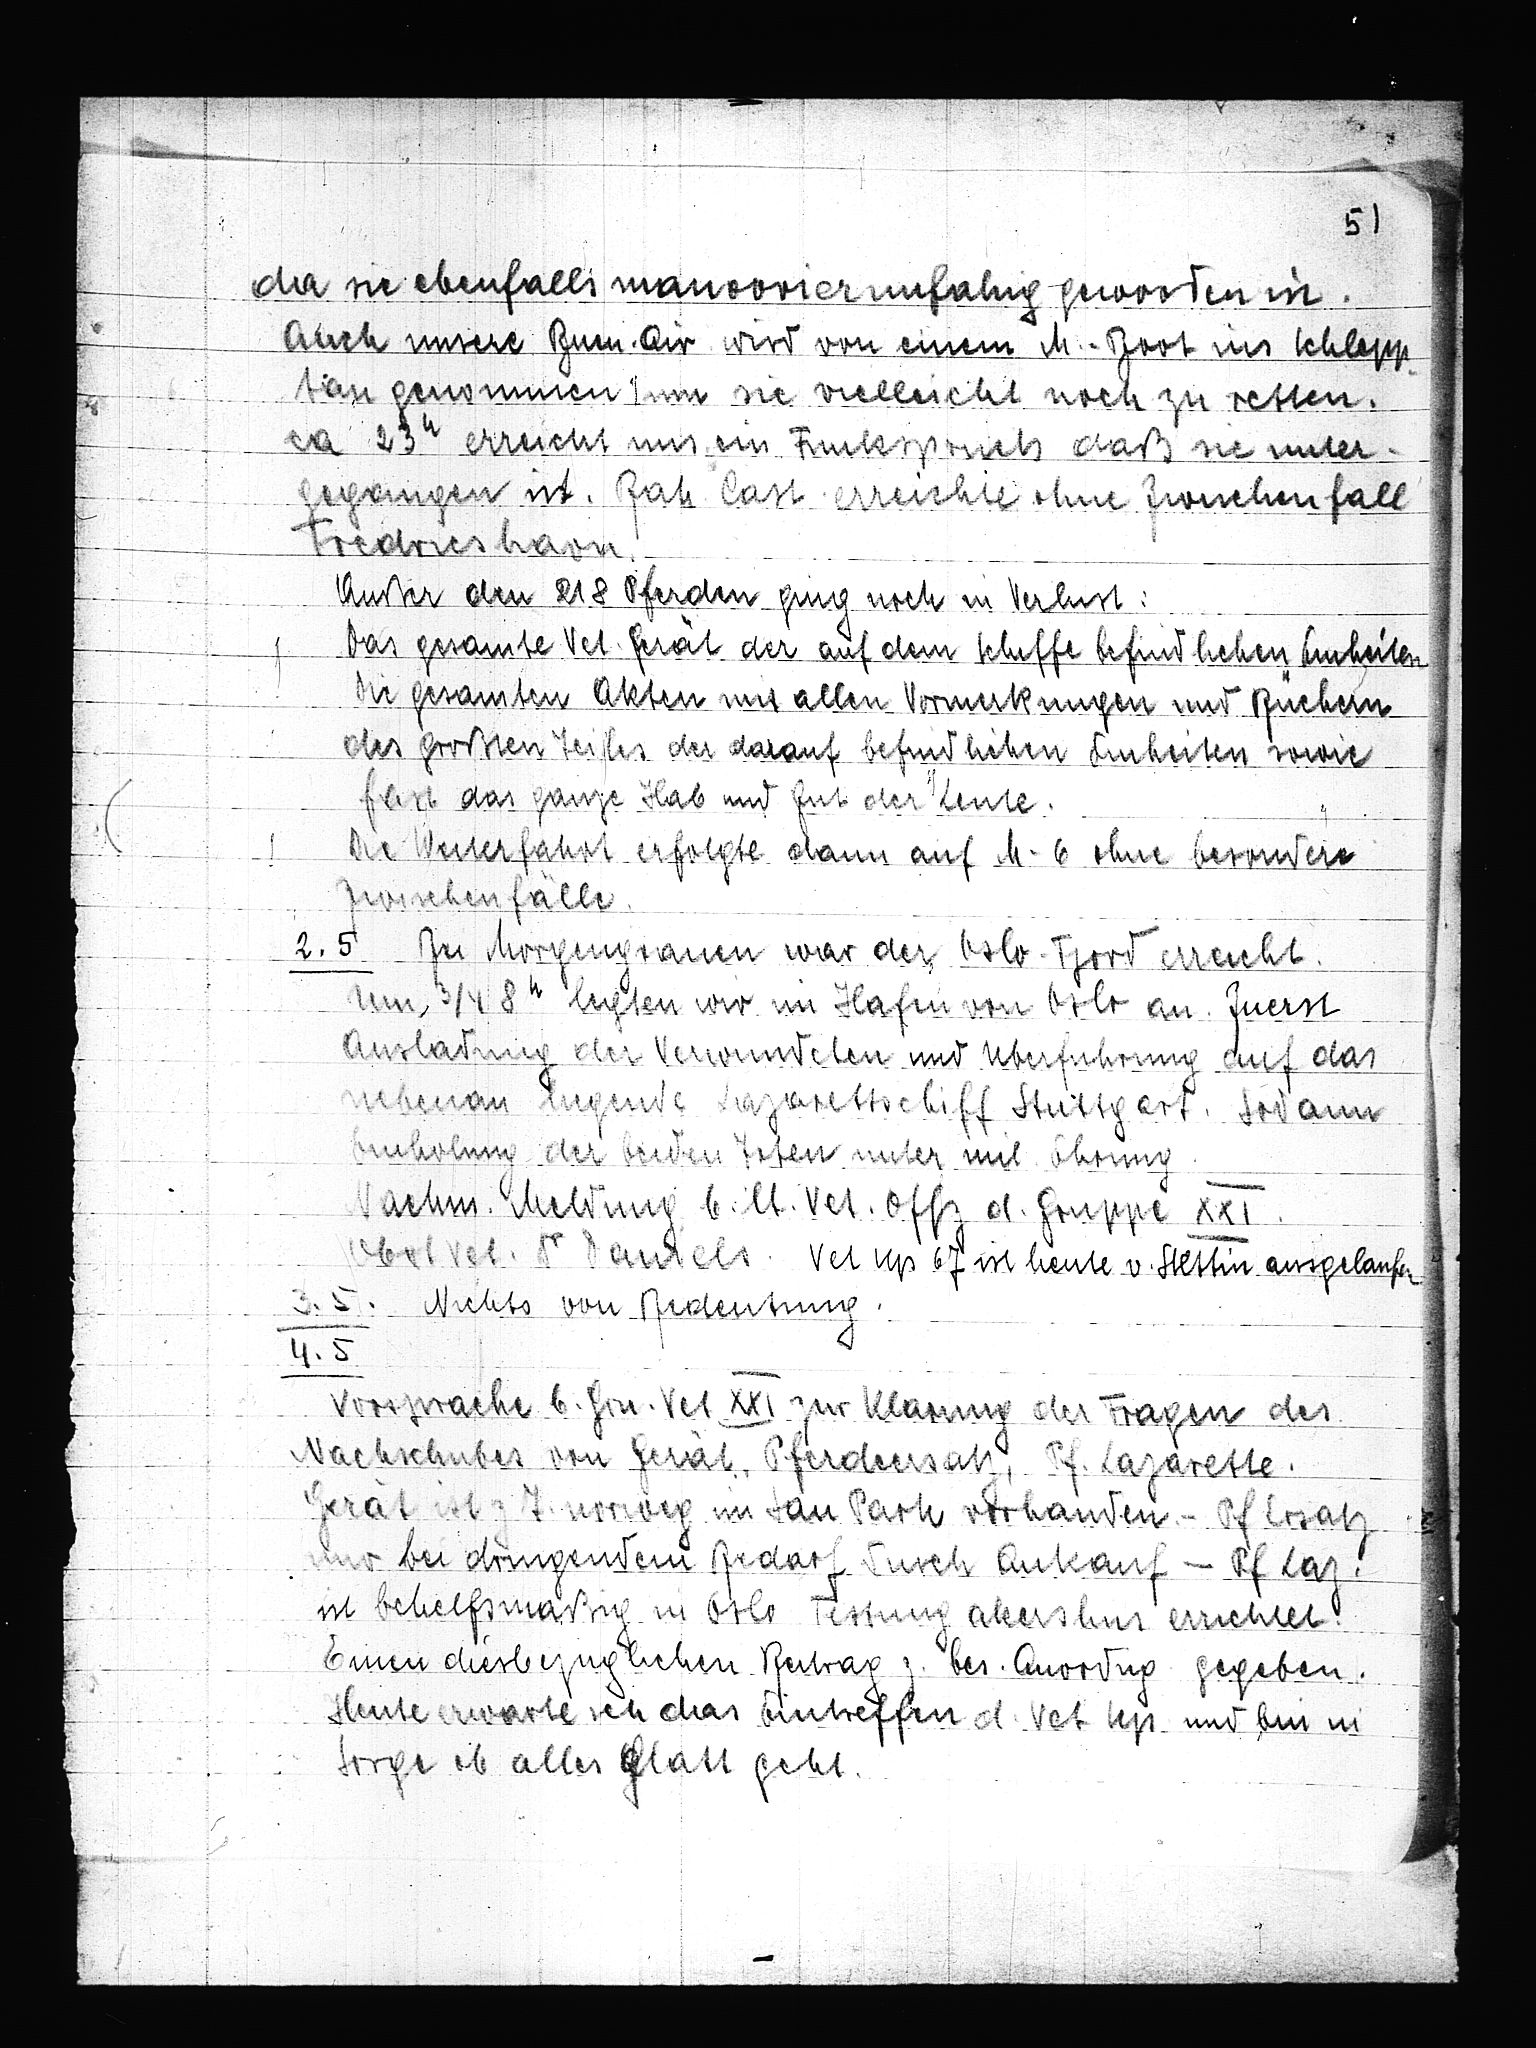 51
da sie ebenfalls manovrierunfahig geworden ist.
Auch unsere Buen. Air wird von einem M.-Boot ins Schlepp-
tau genommen um sie vielleicht noch zu retten.
ca 23h erreicht uns ein Funkspruch daß sie unter-
gegangen ist. Bah. Cast. erreichte ohne Zwischenfall
Fredrieshavn.
Außer den 218 Pferden ging noch in Verlust:
Das gesamte Vet. Gerät der auf dem Schiffe befindlichen Einheiten
Die gesamten Akten mit allen Vormerkungen und Büchern
des großten Teiles der darauf befindlichen Einheiten sowie
fast das ganze Hab und Gut der Leute.
Die Weiterfahrt erfolgte dann auf M-6 ohne besondere
Zwischenfälle.
2.5 Bei Morgengrauen war der Oslo-Fjord erreicht.
Um 3/4 8h legten wir im Hafen von Oslo an. Zuerst
Ausladung der Verwundeten und Uberfuhrung auf das
nebenan liegende Lazarettschiff Stuttgart. Sodann
Einholung der beiden Toten unter mil. Ehrung.
Nachm. Meldung b. lt. Vet. Offz d. Gruppe XXI.
Obstvet. Dr Daniels. Vet Kp 67 ist heute v. Stettin ausgelaufen
3.5. Nichts von Bedeutung.
4.5
Vorsprache b. Gru. Vet XXI zur Klarung der Fragen des
Nachschubes von Gerät, Pferdeersatz, Pf. Lazarette.
Gerät ist z. T. norweg im San Park vorhanden. - Pf Ersatz
nur bei dringendem Bedarf durch Ankauf - Pf Laz.
ist behelfsmaßig in Oslo Festung akershus errichtet.
Einen diesbezuglichen Beitrag z. bes. Anordng gegeben.
Heute erwarte ich das Eintreffen d. Vet Kp und bin in
Sorge ob alles Glatt geht.